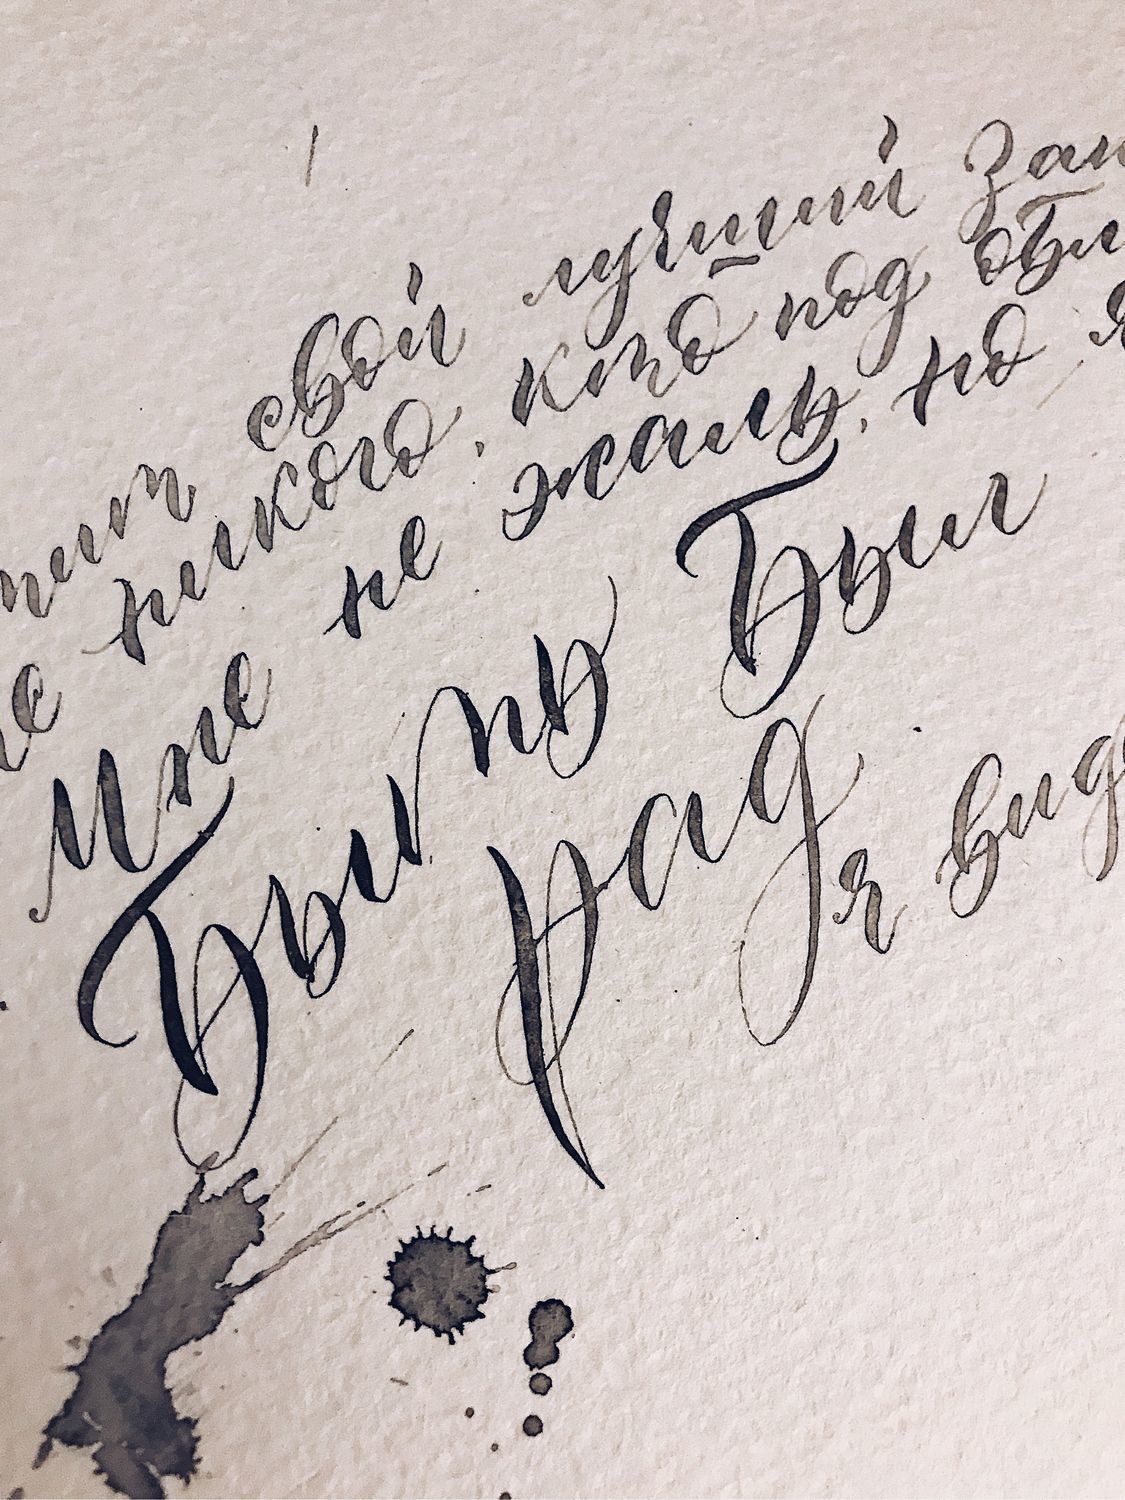 свой лучший
никого, кто под
Мне не жаль, но я
Быть Был
рад я вид